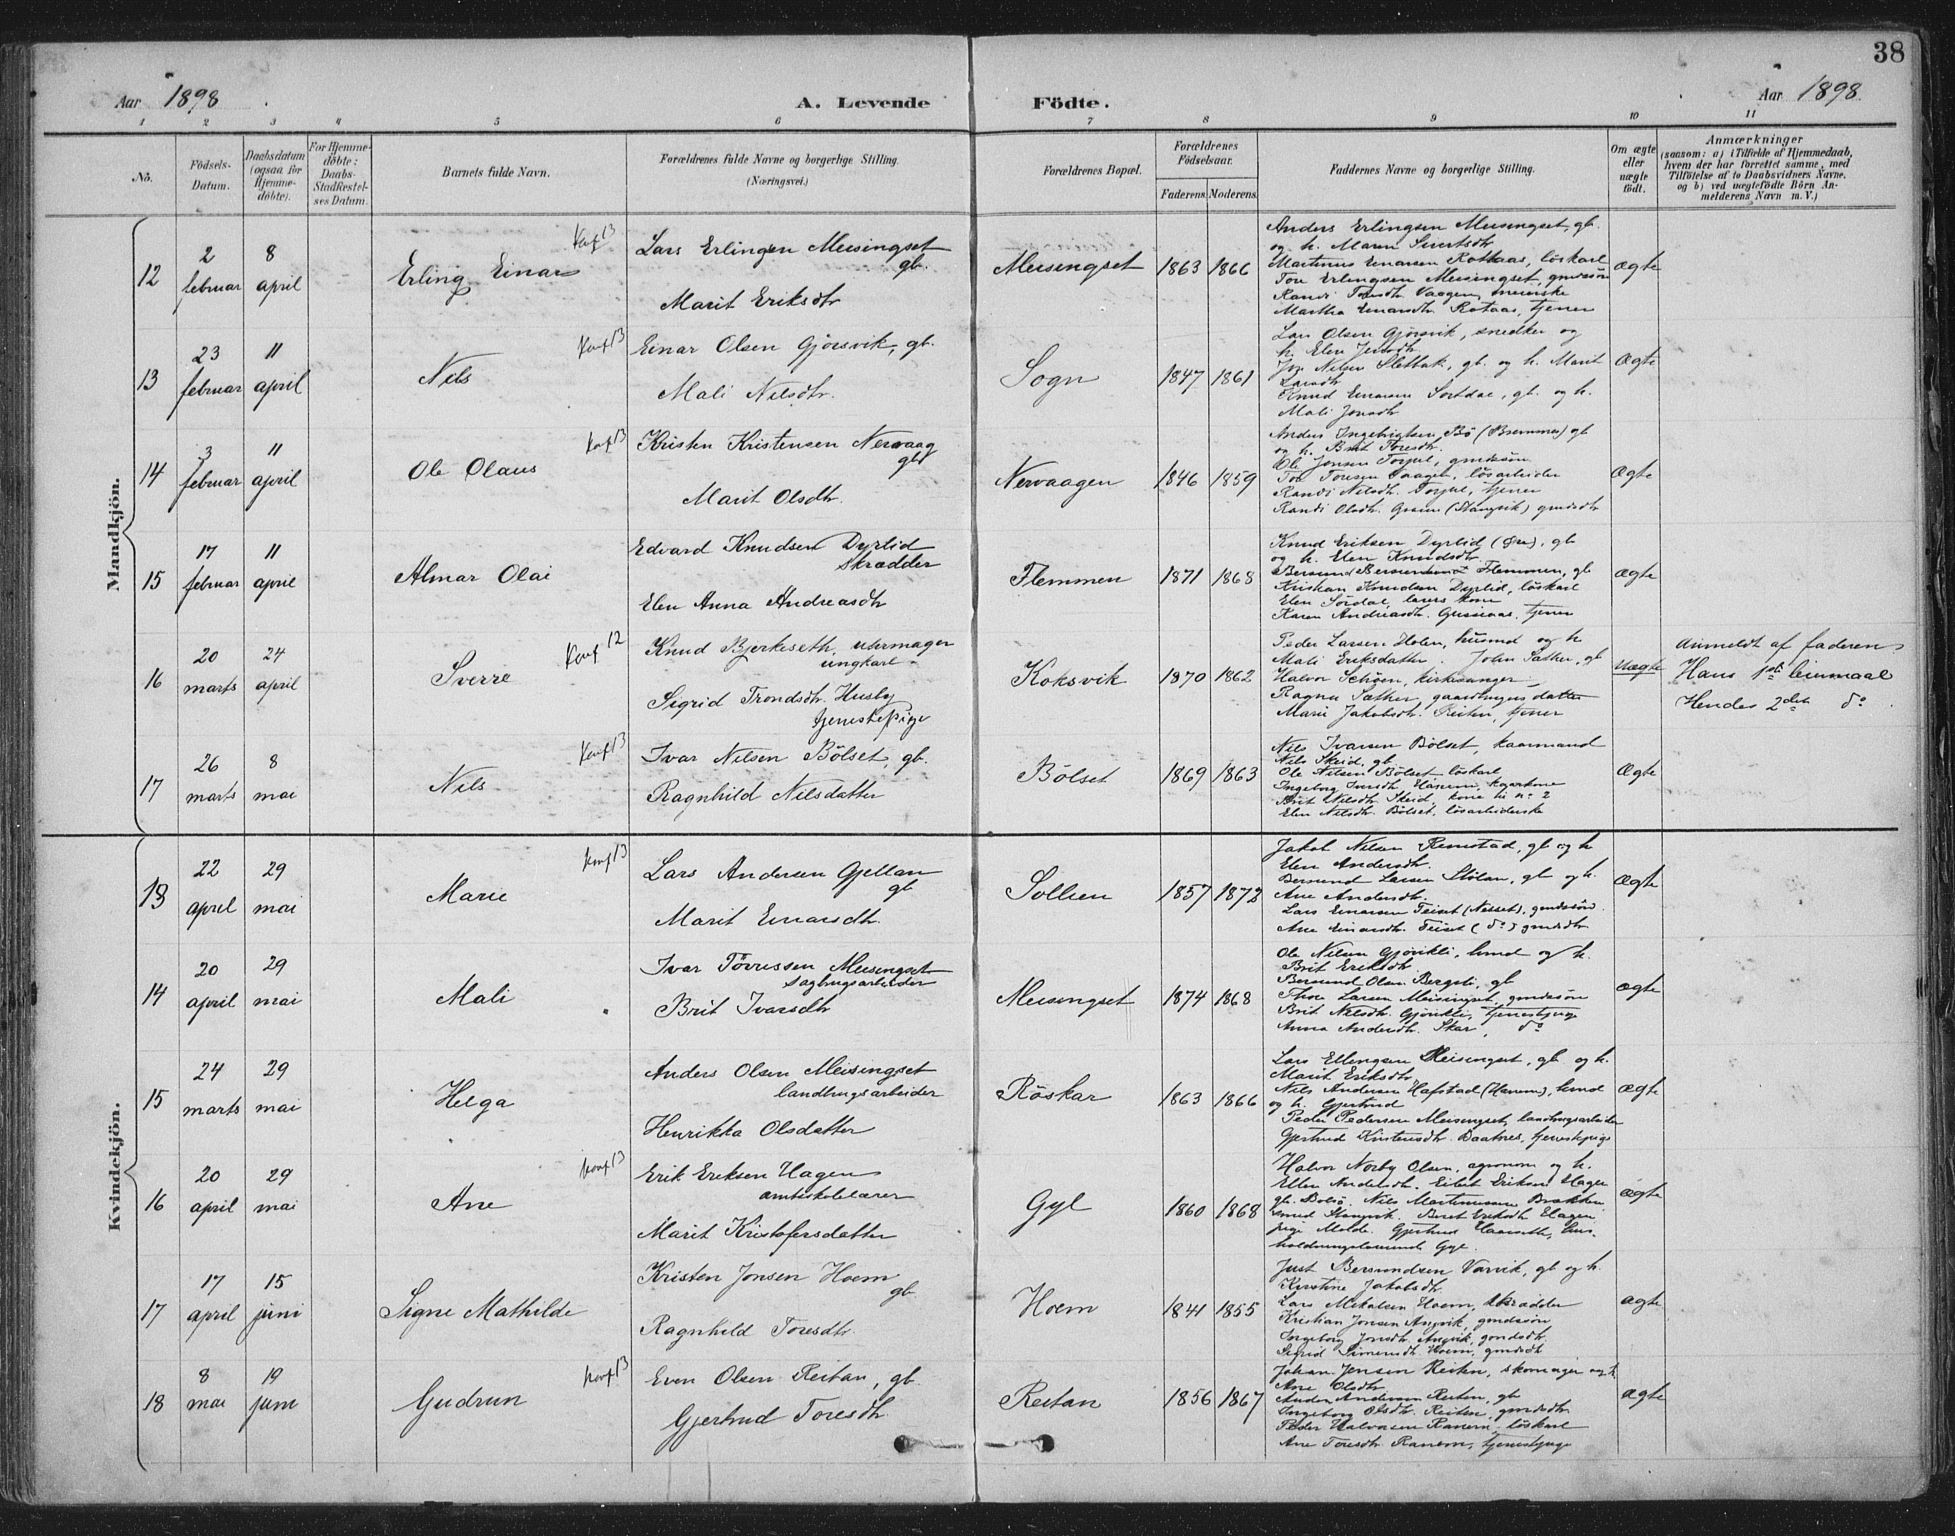 38
Aar 1898
A. Levende Födte.
Aar 1898
1 2 3 4 5 6 7 8 9 10 11
No.
Födsels-Datum.
Daabsdatum (ogsaa for Hjemme-döbte).
For Hjemme-döbte: Daabs-Stadfæstel-ses Datum.
Barnets fulde Navn.
Forældrenes fulde Navne og borgerlige Stilling.
(Næringsvei.)
Forældrenes Bopæl.
Forældrenes Födselsaar.
Faderens. Moderens.
Faddernes Navne og borgerlige Stilling.
Om ægte eller uægte födt.
Anmærkninger
(saasom: a) i Tilfælde af Hjemmedaab,
hvem der har forrettet samme, med
Tilföielse af to Daabsvidners Navne,
og b) ved uægtefödte Börn An-
melderens Navn m. V.)
Mandkjön.
12
2 februar
8 april
Erling Einar
Konf 13
Lars Erlingsen Meisingset
gb.
Marit Eriksdtr
Meisingset
1863 1866
Anders Erlingsen Meisingset, gb.
og h. Maren Sivertsdtr
Martinus Einarsen Rottaas, löskarl
Tore Erlingsen Meisingset, gmdssön
Randi Toresdtr. Vaagen,
Martha Einarsdtr. Rotaas, tjener
Ægte
13
23 februar
11 april
Nils
Konf 13
Einar Olsen Gjörsvik, gb.
Mali Nilsdtr.
Sogn
1847 1861
Lars Olsen Gjörsvik, snedker og
h. Elen Jensdtr
Nilsen Sletbak, gb. og h. Marit
Larsdtr
Knud Einarsen Sordal, gb. og h.
Mali Jonsdtr
Ægte
14
3 februar
11 april
Ole Olaus
Konf 13
Kristen Kristensen Nervaag
gb
Marit Olsdtr.
Nervaagen
1846 1859
Anders Ingebrigtsen Bö (Bremsnes) gb
og h. Brit Toresdtr.
Ole Jonsen Torjul, gmdssön
Tore Toresen Vaagen, lösarbeider
Randi Nilsdtr. Torjul, tjener
Randi Olsdtr. (Stangvik) gmdsdtr
Ægte
15
17 februar
11 april
Almar Olai
Edvard Knudsen Dyrlid
skrædder
Elen Anna Andreasdtr
Flemmen
1871 1868
Knud Eriksen Dyrlid (Øre), gb
og h. Elen Knudsdtr.
Bersvend Flemmen, gb
Kristian Knudsen Dyrlid, löskarl
Elen Sördal, lærers kone
Karen Andreasdtr. tjener
Ægte
16
20 marts
24 april
Sverre
Konf 12
Knud Bjerkeseth, uhrmager
ungkarl
Sigrid Trondsdtr. Husby
tjenestepige
Koksvik
1870 1862
Peder Larsen Holen, husmd og h.
Mali Eriksdatter. John Sæther, gb
Halvor Schjen, kirkesanger
Ragna Sæther, gaardbrugersdatter
Marie Jakobsdtr. Reiten, tjener
Uægte
Anmeldt af faderen
Hans 1ste leiermaal
Hendes 2det do
17
26 marts
8 mai
Nils
Konf 13
Ivar Nilsen Bölset, gb.
Ragnhild Nilsdatter
Bölset
1869 1863
Nils Ivarsen Bölset, kaarmand
Nils Skeid, gb
Ole Nilsen Bölset, löskarl
Ingeborg Hanem, kone
Brit Nilsdtr. Skeid, kone til no 2
Elen Nilsdtr. Bölset, lösarbeiderske
Ægte
Kvindekjön.
13
22 april
29 mai
Marie
Konf 13
Lars Andersen Gjellan
gb
Marit Einarsdtr.
Sollien
1857 1872
Jakob Nilsen Rimstad, gb og h
Elen Andersdtr.
Bersvend Larsen Stölan, gb og h.
Ane Andersdtr.
Lars Einarsen Teiset (Nesset), gmdssön
Ane Einarsdtr. Teiset (do) gmdsdtr
Ægte
14
20 april
29 mai
Mali
Ivar Tövessen Meisingset
sagbrugsarbeider
Brit Ivarsdtr
Meisingset
1874 1868
Ole Nilsen Gjövikli, husmd og h.
Brit Eriksdtr
Bersvend Olsen Bergsli, gb
Thore Larsen Meisingset, gmdssön
Brit Nilsdtr. Gjövikli, tjenestepige
Anna Andersdtr. Skar, do
Ægte
15
24 marts
29 mai
Helga
Anders Olsen Meisingset
landbrugsarbeider
Henrikka Olsdatter
Röskar
1863 1866
Lars Ellingsen Meisingset, gb og h.
Marit Eriksdtr
Nils Andersen Hafstad (Hanem), husmd
og h. Gjertrud
Peder Pedersen Meisingset, landbrugsarbeider
Gjertrud Kristensdtr. Baatnes, tjenestepige
Ægte
16
20 april
29 mai
Ane
Konf 13
Erik Eriksen Hagen
amtsskolelærer
Marit Kristofersdatter
Gyl
1860 1868
Halvor Norby Olsen, agronom og h.
Ellen Andersdtr. Erik Eriksen Hagen
gb. Bolsö, Nils Martinussen Brækken
smed Stangvik. Beret Eriksdtr. Hagen
pige Molde. Gjertrud
Gyl.
Ægte
17
17 april
15 juni
Signe Mathilde
Kristen Jonsen Hoem
gb
Ragnhild Toresdtr.
Hoem
1841 1855
Just Bersvendsen Varvik, gb og h.
Kirstine Jakobsdtr
Lars Mikalsen Hoem, skrædder
Kristian Jonsen Angvik, gmdssön
Ingeborg Jonsdtr. Angvik, gmdsdtr.
Sigrid Simensdtr. Hoem, gmdsdtr
Ægte
18
8 mai
19 juni
Gudrun
Konf 13
Even Olsen Reitan, gb.
Gjertrud Toresdtr.
Reitan
1856 1867
Johan Jensen Reiten, skomager og h.
Ane Olsdtr
Anders Andersen Reiten, gb
Ingeborg Olsdtr. Reiten, gmdsdtr
Peder Halvorsen Ranem, löskarl
Ane Toresdtr. Ranem, tjenestepige
Ægte